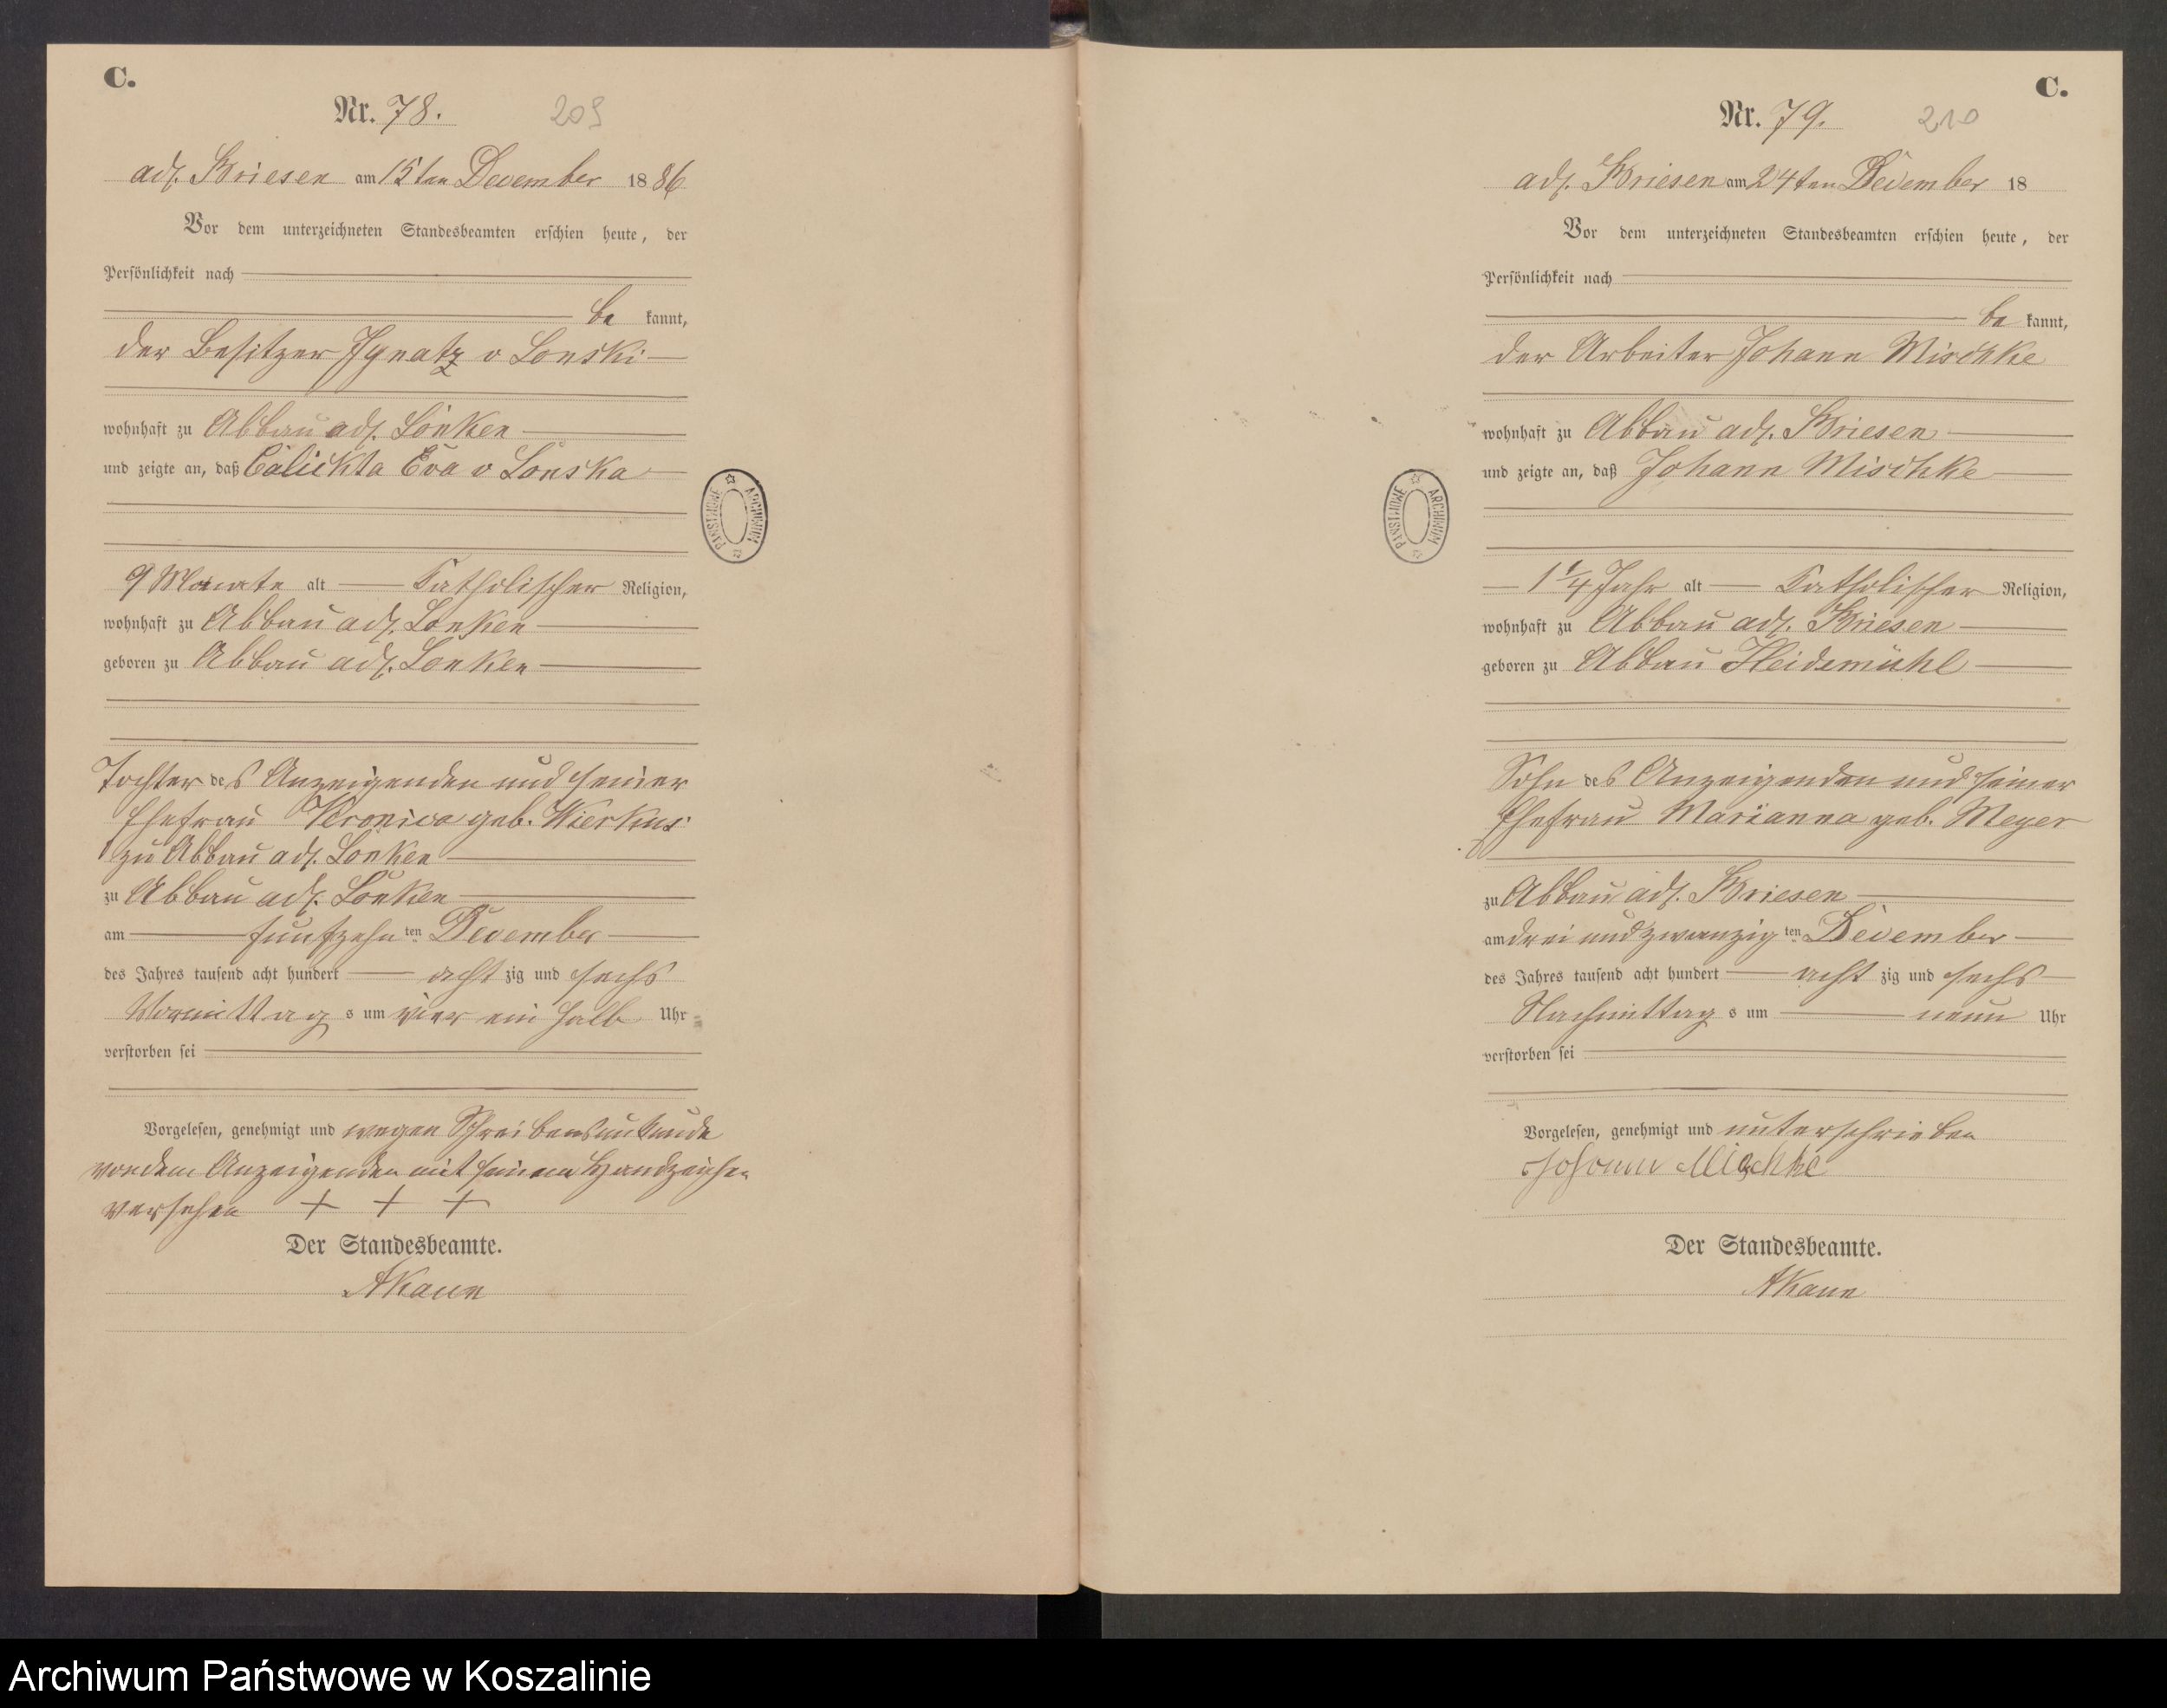 C.
Nr. 78. 209
adl. Briesen am 15ten December 1886
Vor dem unterzeichneten Standesbeamten erschien heute, der
Persönlichkeit nach
be kannt,
der Besitzer Ignatz v Lonski
wohnhaft zu Abbau adl. Lonken
und zeigte an, daß Calickta Eva v Lonska
9 Monate alt katholischer Religion,
wohnhaft zu Abbau adl. Lonken
geboren zu Abbau adl. Lonken
Tochter des Anzeigenden und seiner
Ehefrau Veronica geb. Wierkus
zu Abbau adl. Lonken
zu Abbau adl. Lonken
am fünfzehn ten December
des Jahres tausend acht hundert acht zig und sechs
Vormittag s um vier ein halb Uhr
verstorben sei
Vorgelesen, genehmigt und wegen Schreibensunkunde
von dem Anzeigenden mit seinem Handzeichen
versehen + + +
Der Standesbeamte.
AKaun
PAŃSTWOWE ARCHIWUM
C.
Nr. 79. 210
adl. Briesen am 24ten December 18
Vor dem unterzeichneten Standesbeamten erschien heute, der
Persönlichkeit nach
be kannt,
der Arbeiter Johann Mischke
wohnhaft zu Abbau adl. Briesen
und zeigte an, daß Johann Mischke
1 1/4 Jahr alt katholischer Religion,
wohnhaft zu Abbau adl. Briesen
geboren zu Abbau Heidemühl
Sohn des Anzeigenden und seiner
Ehefrau Marianna geb. Meyer
zu Abbau adl. Briesen
am drei und zwanzig ten December
des Jahres tausend acht hundert acht zig und sechs
Nachmittag s um neun Uhr
verstorben sei
Vorgelesen, genehmigt und unterschrieben
Johann Mischke
Der Standesbeamte.
AKaun
PAŃSTWOWE ARCHIWUM
Archiwum Państwowe w Koszalinie